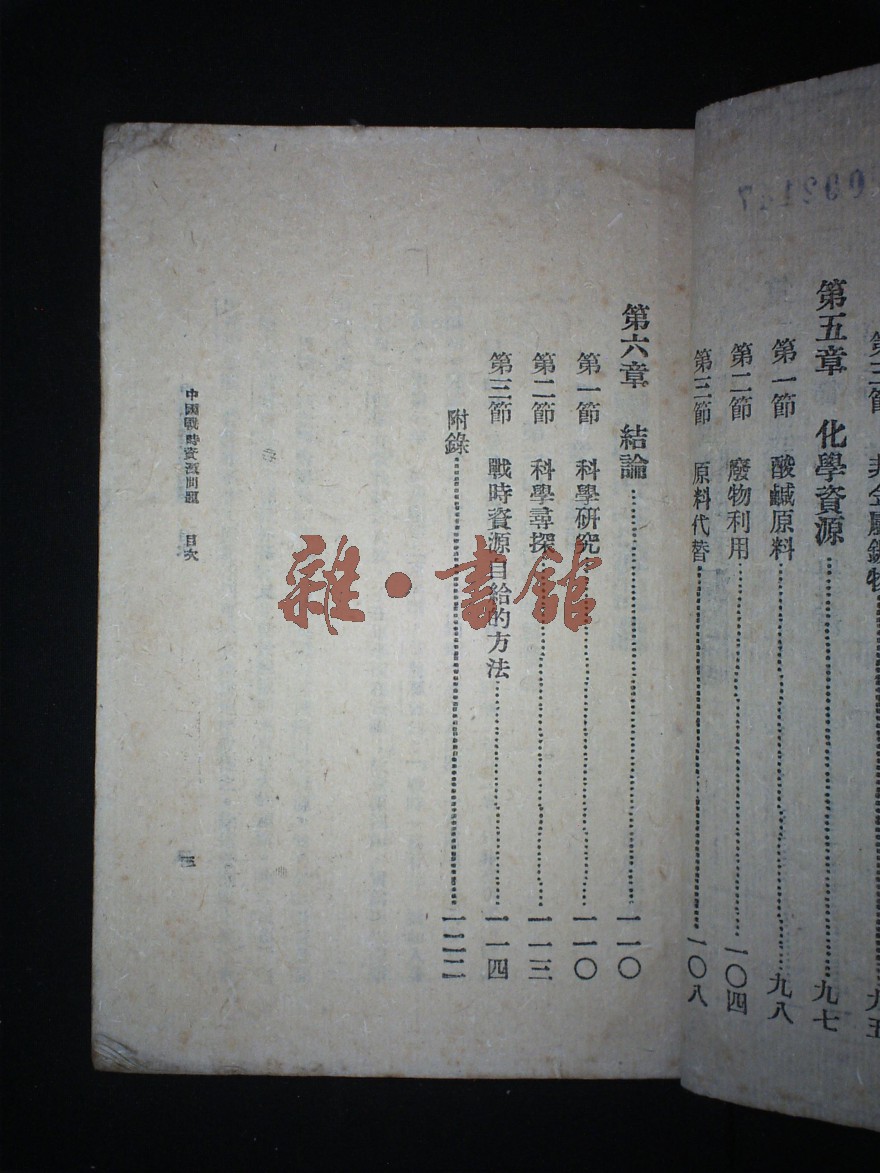 第三節　非金屬鑛物……九五
第五章　化學資源……九七
第一節　酸鹹原料……九八
第二節　廢物利用……一〇四
第三節　原料代替……一〇八
第六章　結論……一一〇
第一節　科學研究……一一〇
第二節　科學尋探……一一三
第三節　戰時資源自給的方法……一一四
附錄……一二二
中國戰時資源問題　目次　三
雜·書館